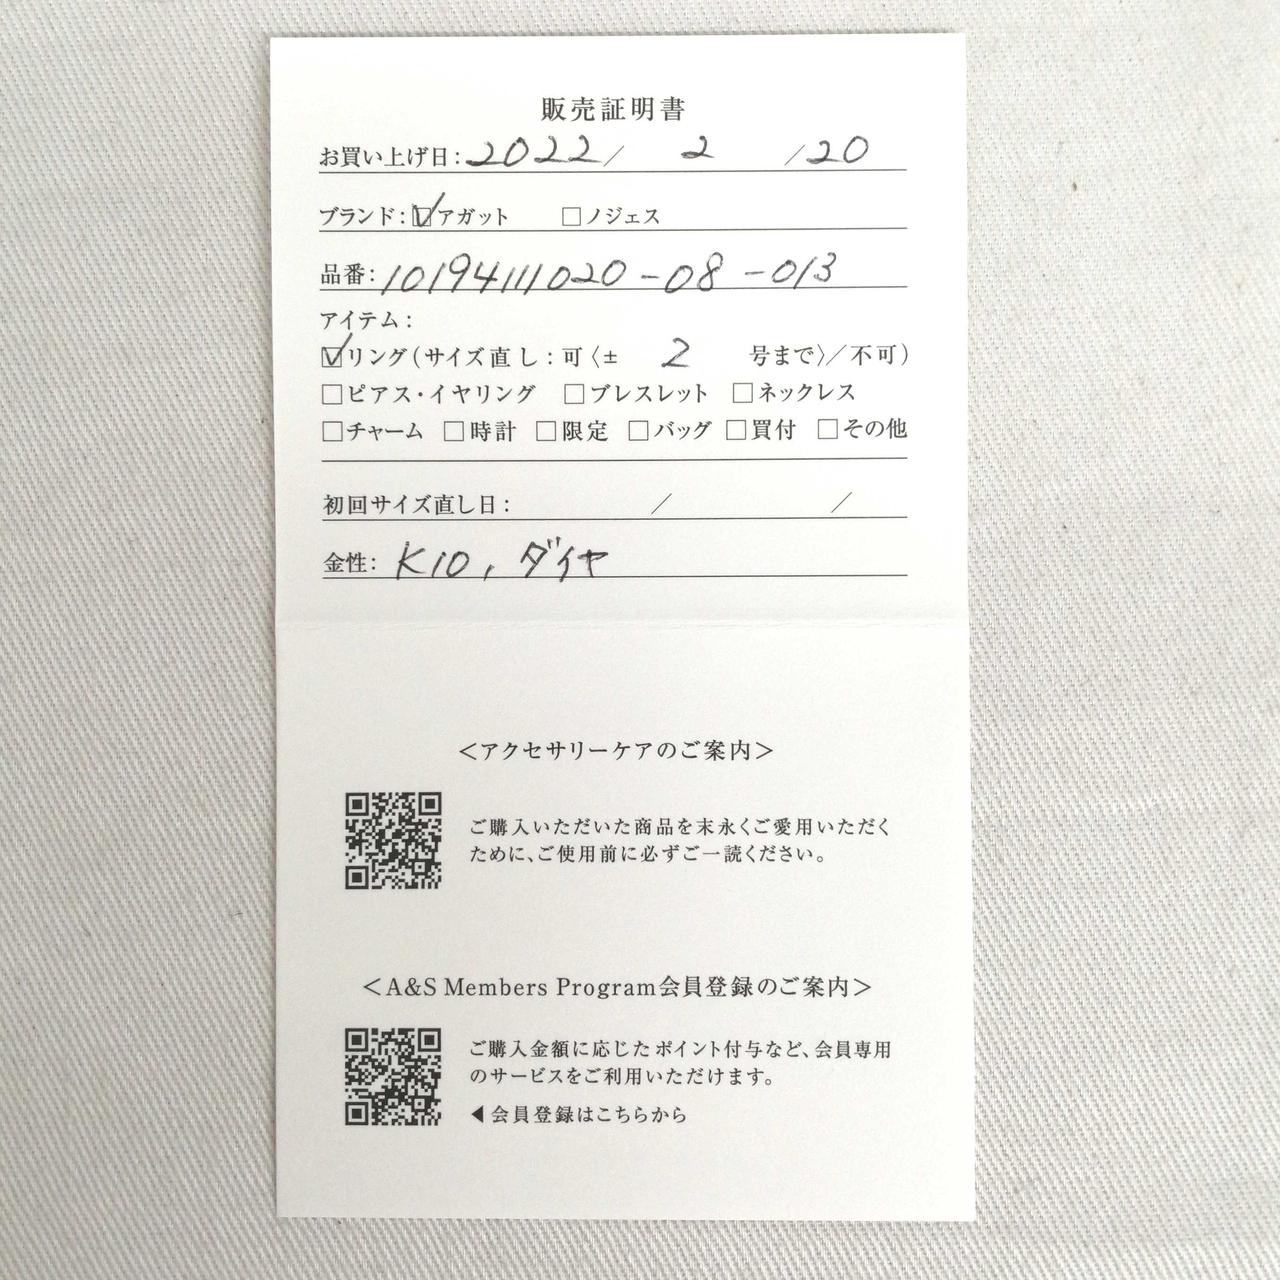 販売証明書
お買い上げ日：2022／ 2 ／20
ブランド：☑アガット □ノジェス
品番：10194111020-08-013
アイテム：
☑リング（サイズ直し：可〈± 2 号まで〉／不可）
□ピアス・イヤリング □ブレスレット □ネックレス
□チャーム □時計 □限定 □バッグ □買付 □その他
初回サイズ直し日： ／ ／
金性：K10，ダイヤ
＜アクセサリーケアのご案内＞
ご購入いただいた商品を末永くご愛用いただく
ために、ご使用前に必ずご一読ください。
＜A&S Members Program会員登録のご案内＞
ご購入金額に応じたポイント付与など、会員専用
のサービスをご利用いただけます。
◀会員登録はこちらから